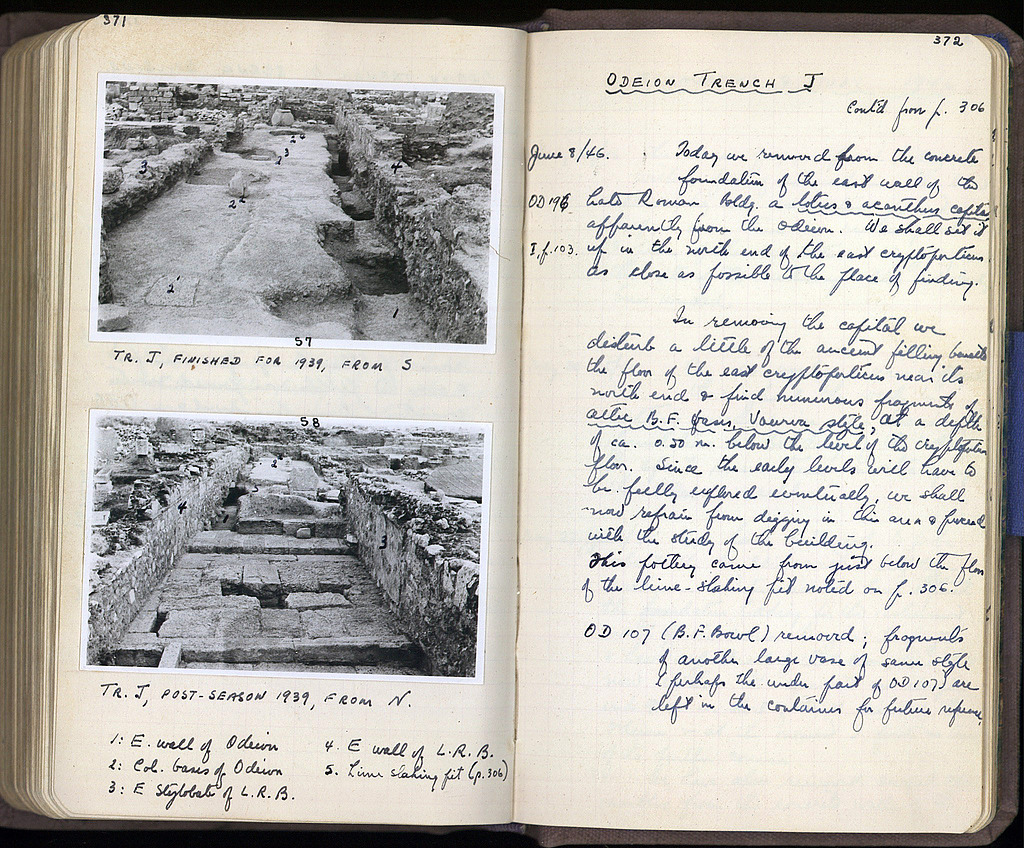 371
57
TR. J, FINISHED FOR 1939, FROM S
58
TR. J, POST-SEASON 1939, FROM N.
1: E. wall of Odeion
2: Col. bases of Odeion
3: E Stylobate of L.R.B.
4. E wall of L.R.B.
5. Lime slaking pit (p.306)
372
ODEION TRENCH J
Cont'd from p. 306
June 8/46. Today we removed from the concrete
foundation of the east wall of the
OD 196 Late Roman Bldg. a lotus & acanthus capital
apparently from the Odeion. We shall set it
I, p.103. up in the north end of the east cryptoporticus
as close as possible to the place of finding.
In removing the capital we
disturb a little of the ancient filling beneath
the floor of the east cryptoporticus near its
north end & find numerous fragments of
attic B.F. vases, Vourva style, at a depth
of ca. 0.50 m. below the level of the cryptoporticus
floor. Since the early levels will have to
be fully explored eventually, we shall
now refrain from digging in this area & proceed
with the study of the building.
This pottery came from just below the floor
of the lime-slaking pit noted on p. 306.
OD 107 (B.F. Bowl) removed; fragments
of another large vase of same style
(perhaps the under part of OD 107) are
left in the containers for future reference.